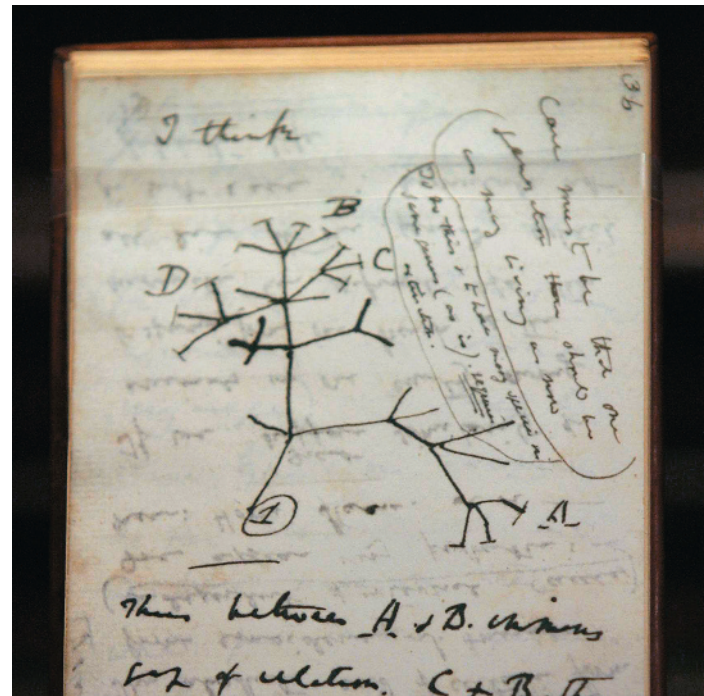 36
I think
Case must be that one
generation then should be
as many living as now
To do this & to have many species in
same genus (as is) requires
extinction.
B
C
D
A
1
Thus between A & B. immense
gap of relation. C & B.